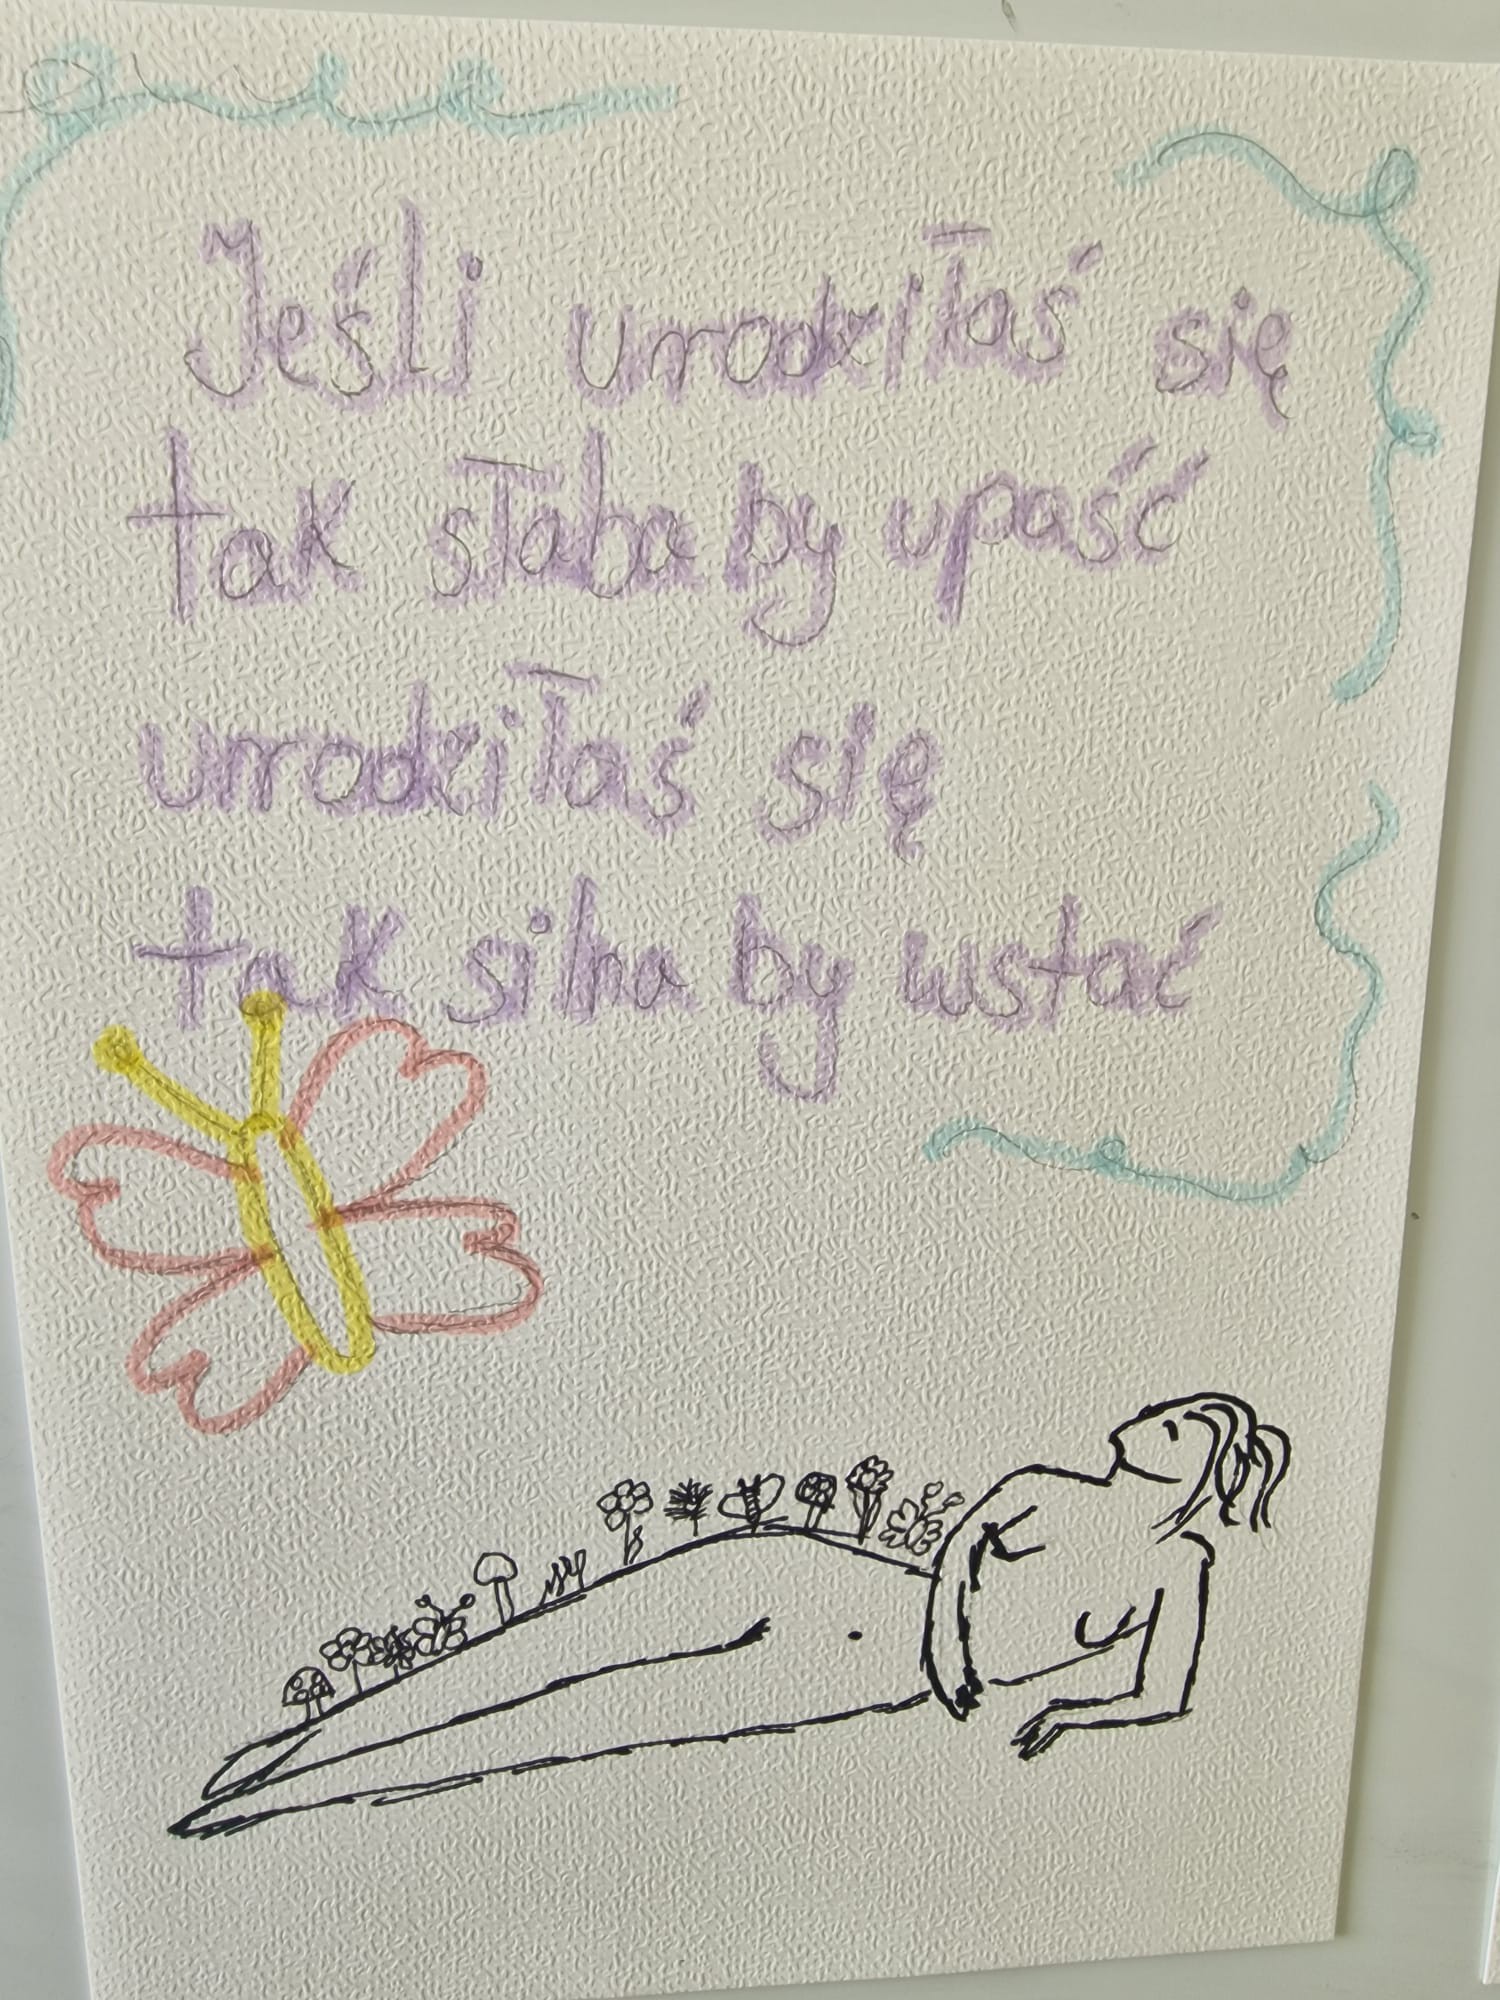 Jeśli urodziłaś się
tak słaba by upaść
urodziłaś się
tak silna by wstać